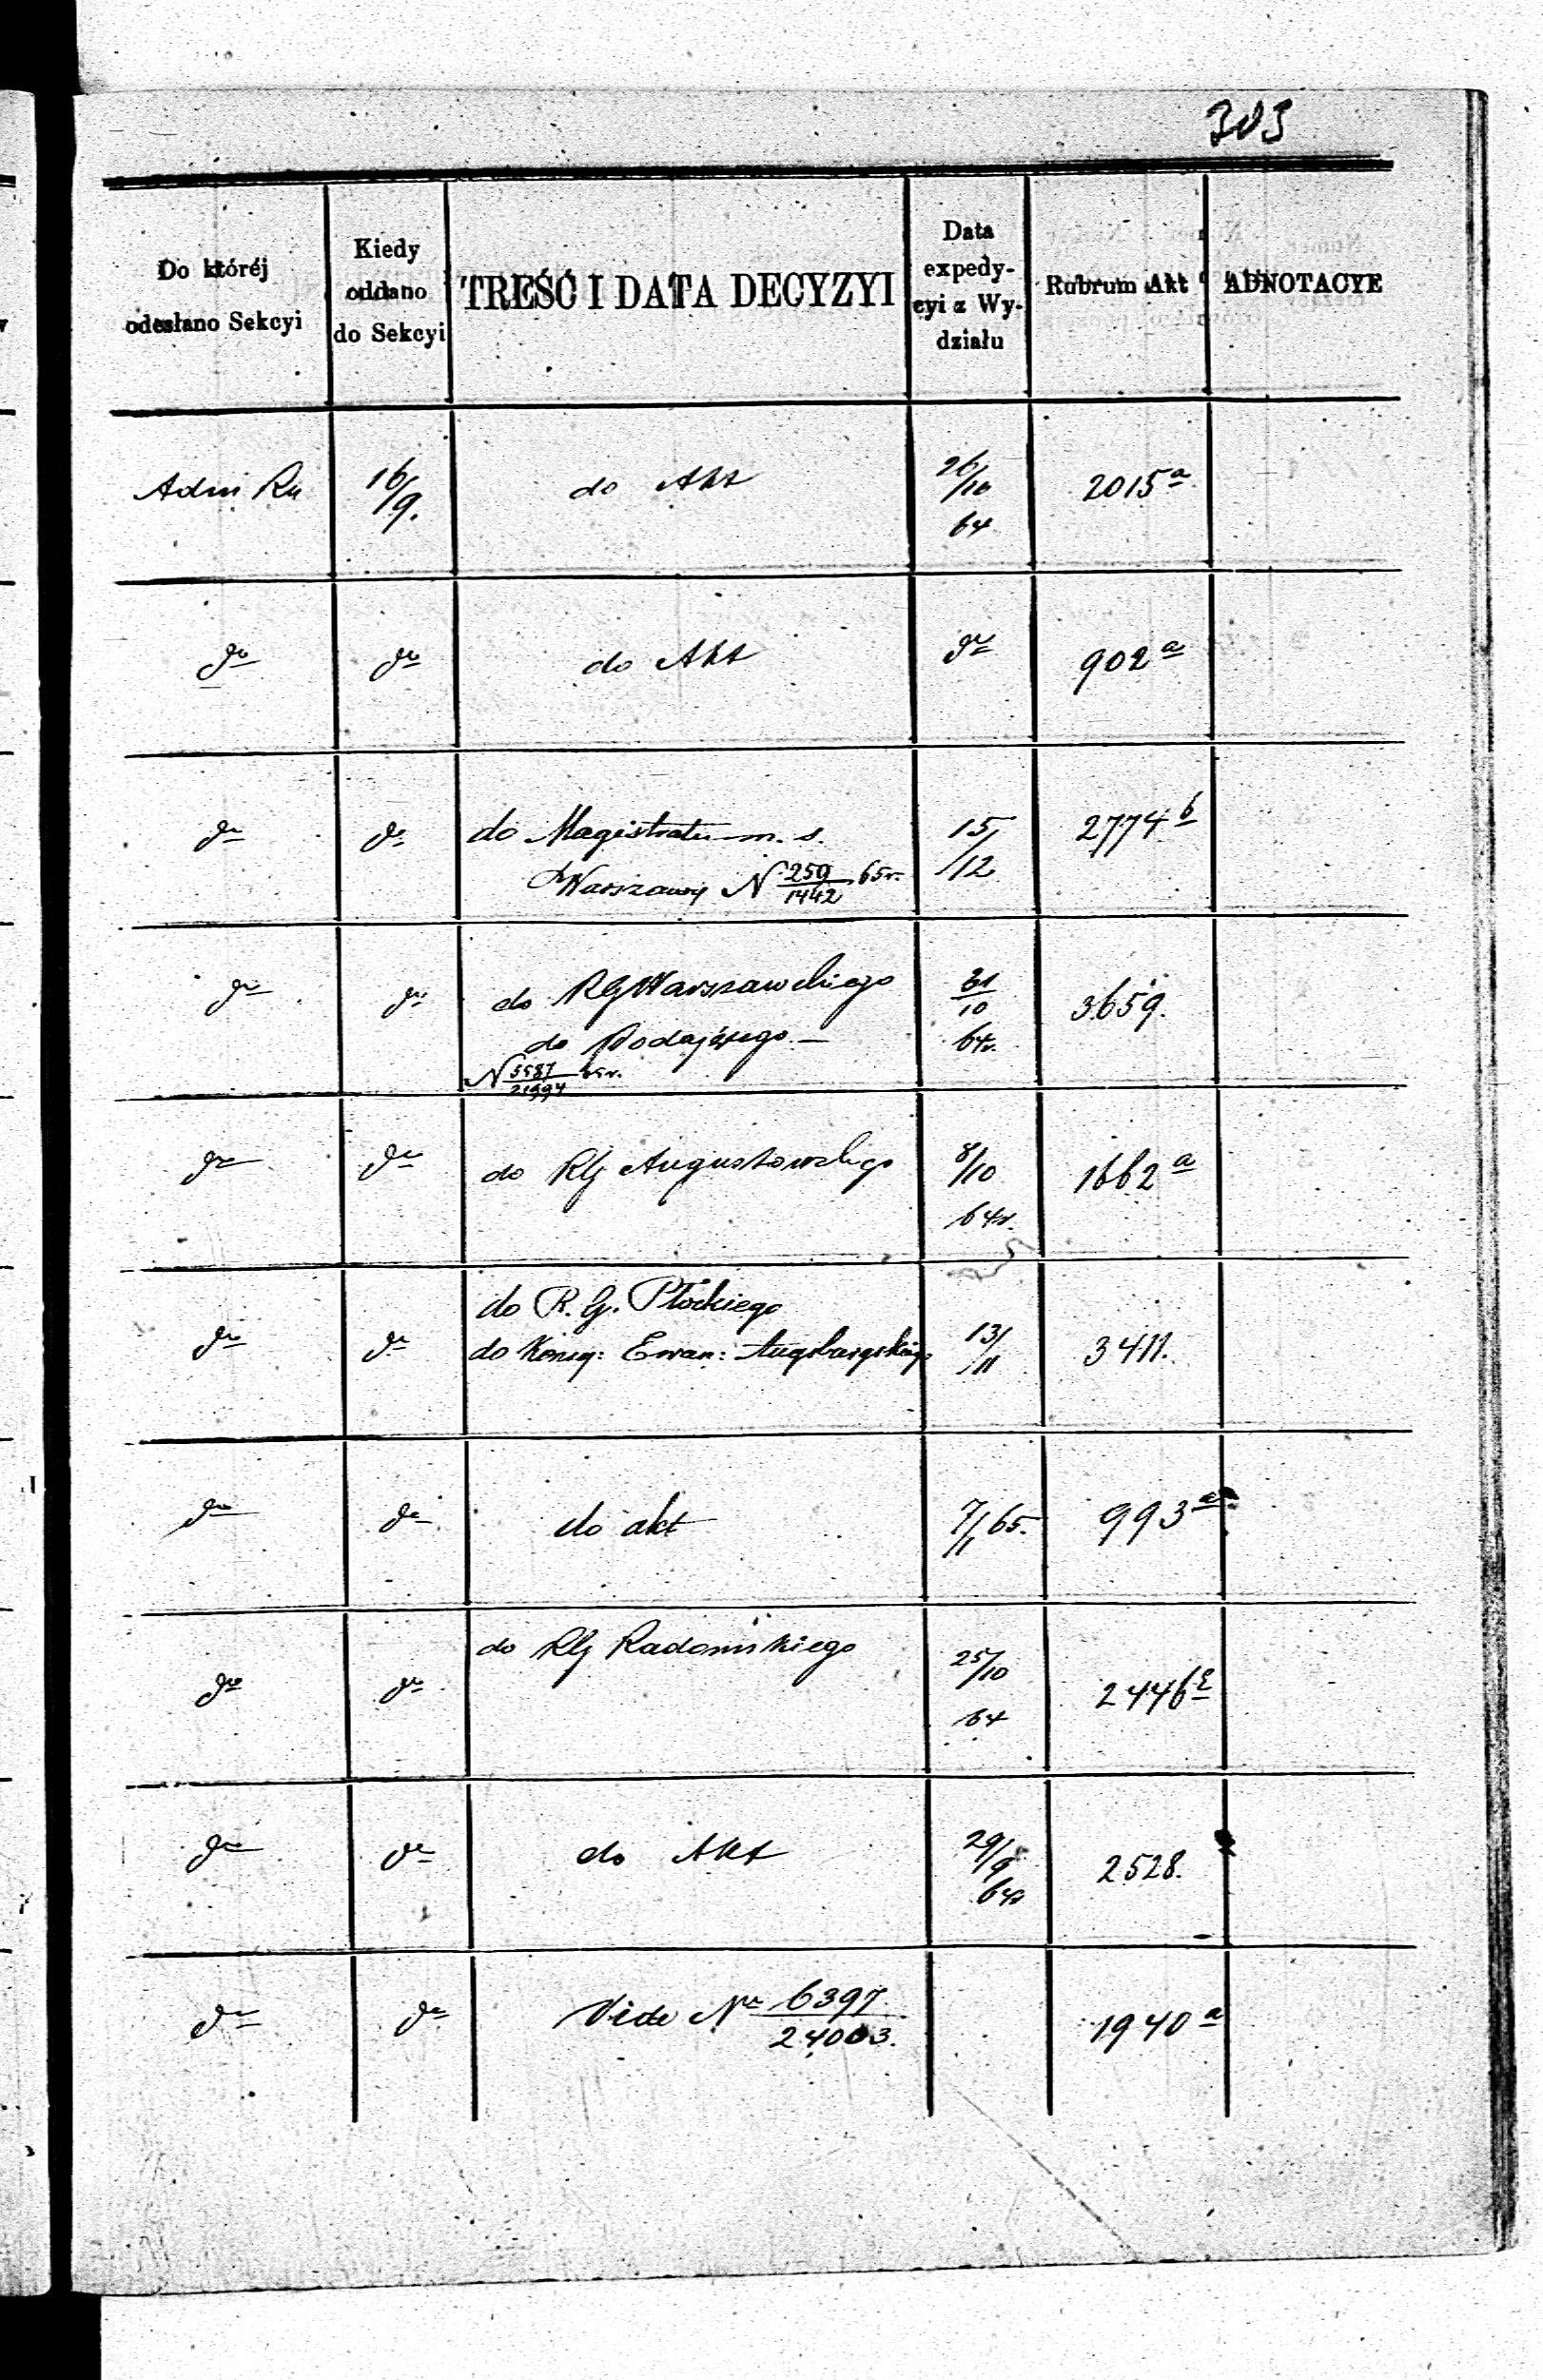 303
Do któréj odesłano Sekcyi
Kiedy oddano do Sekcyi
TREŚĆ I DATA DECYZYI
Data expedycyi z Wydziału
Rubrum Akt
ADNOTACYE
Adm 16/9. do Akt 26/10 64 2015 a
do do do Akt do 902 a
do do do Magistratu m. s. 15/12 2774 b
Warszawy N 259/1442 65r.
do do do RG Warszawskiego 31/10 64r. 3659.
do Podającego
N 5587/21994 65r.
do do do RG Augustowskiego 8/10 64r. 1662 a
do do do R. G. Płockiego 13/11 3411.
do Konsy: Ewan: Augsburgskiego
do do do akt 7/1 65. 993 a
do do do RG Radomskiego 25/10 64 2446
do do do Akt 29/9 64r 2528.
do do Vide Nr 6397/24003. 1940 a